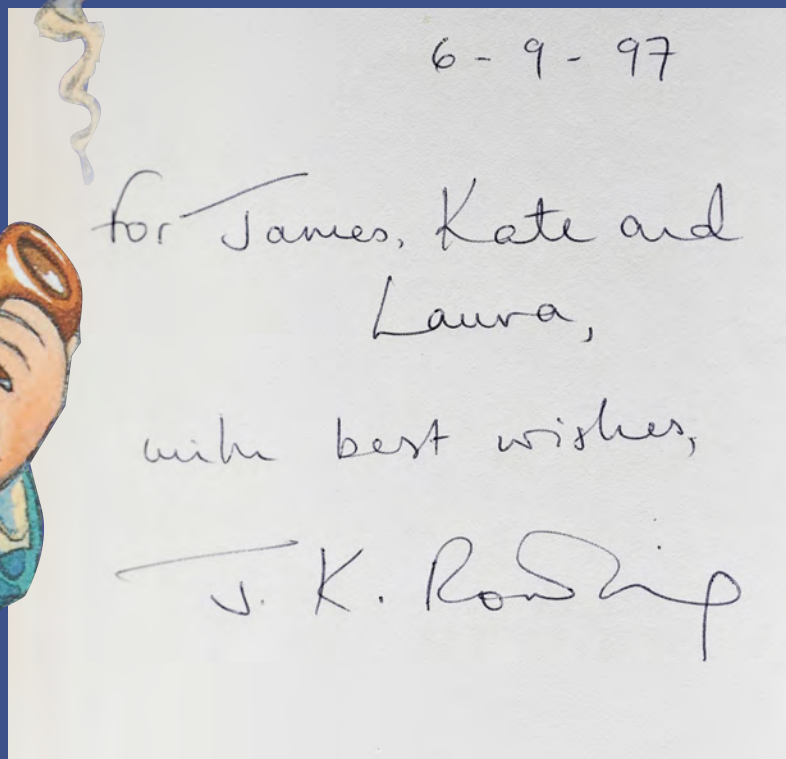 6 - 9 - 97
for James, Kate and
Laura,
with best wishes,
J. K. Rowling